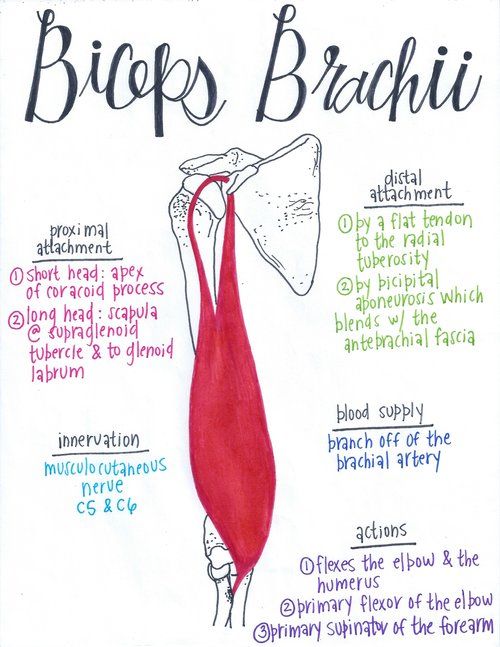 Biceps Brachii
proximal
attachment
① short head: apex
of coracoid process
② long head: scapula
@ supraglenoid
tubercle & to glenoid
labrum
innervation
musculocutaneous
nerve
C5 & C6
distal
attachment
① by a flat tendon
to the radial
tuberosity
② by bicipital
aponeurosis which
blends w/ the
antebrachial fascia
blood supply
branch off of the
brachial artery
actions
① flexes the elbow & the
humerus
② primary flexor of the elbow
③ primary supinator of the forearm